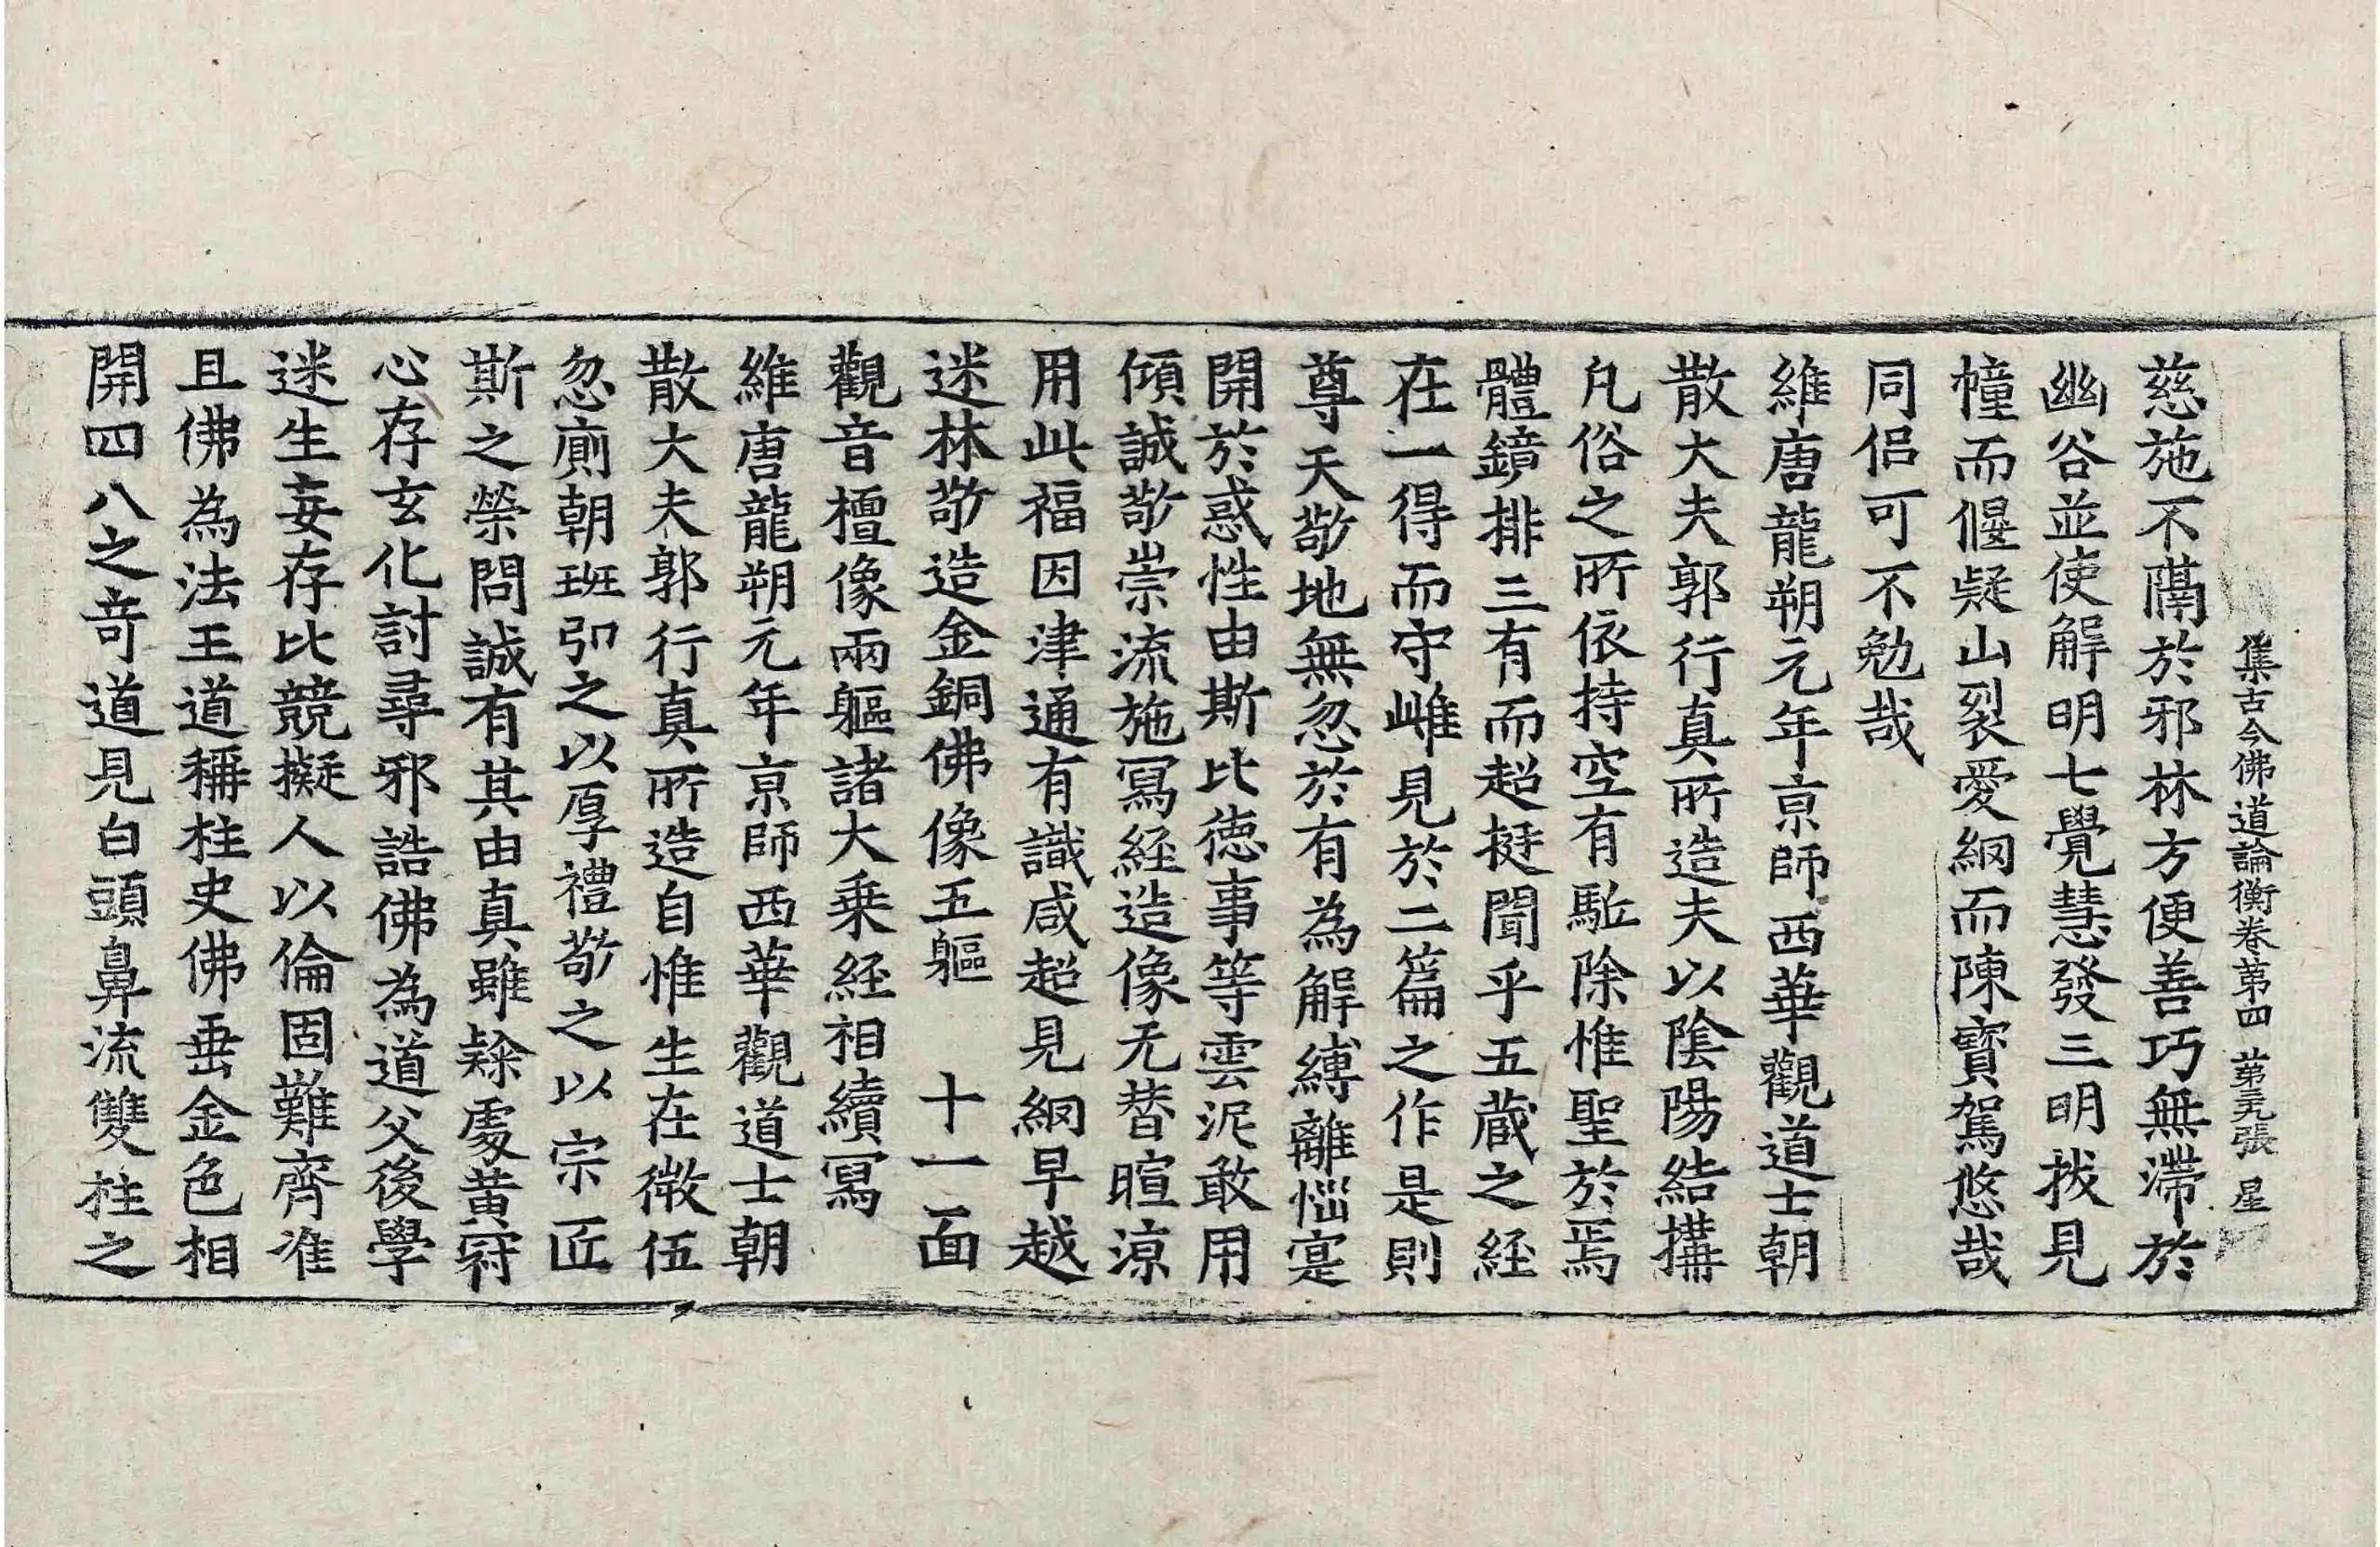 集古今佛道論衡卷第四 第三張 星
慈施不隔於邪林方便善巧無滯於
幽谷並使解明七覺慧發三明拔見
幢而偃疑山裂愛網而陳寶駕悠哉
同侣可不勉哉
維唐龍朔元年京師西華觀道士朝
散大夫郭行真所造夫以陰陽結搆
凡俗之所依持空有駈除惟聖於焉
體鏡排三有而超挺聞乎五蔵之経
在一得而守雌見於二篇之作是則
尊天敬地無忽於有為解縛離惱寔
開於惑性由斯比徳事等雲泥敢用
傾誠敬崇流施冩経造像无替暄涼
用此福因津通有識咸超見網早越
迷林敬造金銅佛像五軀 十一面
觀音檀像兩軀諸大乗経相續冩
維唐龍朔元年京師西華觀道士朝
散大夫郭行真所造自惟生在微伍
忽廁朝班引之以厚禮敬之以宗匠
斯之榮問誠有其由真雖跡處黃冠
心存玄化討尋邪誥佛為道父後學
迷生妄存比競擬人以倫固難齊准
且佛為法王道稱柱史佛垂金色相
開四八之竒道見白頭鼻流雙柱之